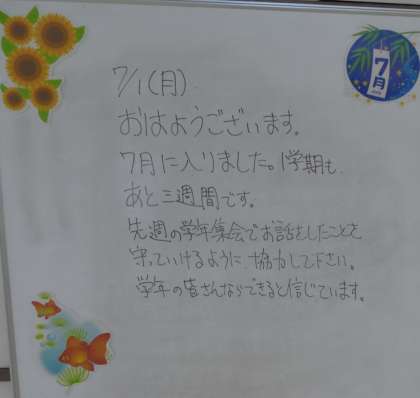 7月
7/1(月)
おはようございます。
7月に入りました。1学期も
あと三週間です。
先週の学年集会でお話をしたことを
守っていけるように、協力して下さい。
学年の皆さんならできると信じています。